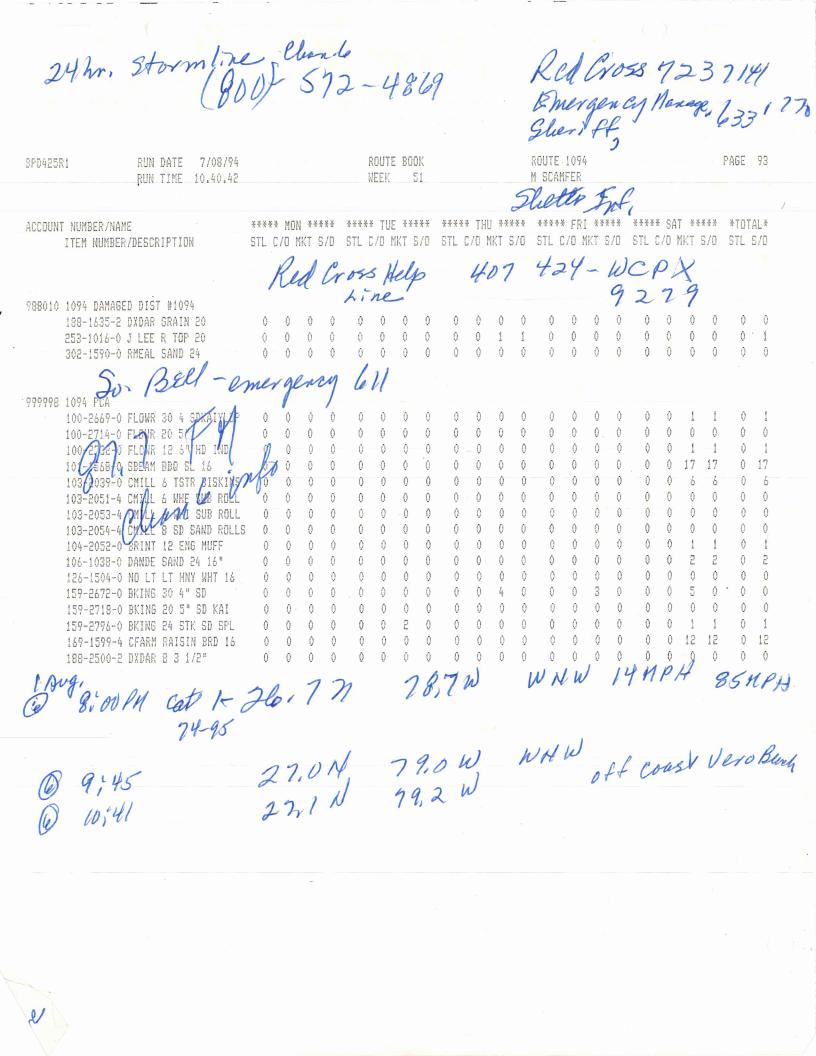 24 hr. Stormline,
(800) 572-4869
Red Cross 7237141
Emergency Manage. 633 1770
Sheriff
SPD425R1 RUN DATE 7/08/94 ROUTE BOOK ROUTE 1094 PAGE 93
RUN TIME 10.40.42 WEEK 51 M SCAMFER
ACCOUNT NUMBER/NAME ***** MON ***** ***** TUE ***** ***** THU ***** ***** FRI ***** ***** SAT ***** *TOTAL*
ITEM NUMBER/DESCRIPTION STL C/O MKT S/O STL C/O MKT S/O STL C/O MKT S/O STL C/O MKT S/O STL C/O MKT S/O STL S/O
Red Cross Help 407 424-WCPX
Line 9279
988010 1094 DAMAGED DIST #1094
188-1635-2 DXDAR GRAIN 20 0 0 0 0 0 0 0 0 0 0 0 0 0 0 0 0 0 0 0 0 0 0
253-1016-0 J LEE R TOP 20 0 0 0 0 0 0 0 0 0 0 1 1 0 0 0 0 0 0 0 0 0 1
302-1590-0 RMEAL SAND 24 0 0 0 0 0 0 0 0 0 0 0 0 0 0 0 0 0 0 0 0 0 0
So. Bell - emergency 611
999998 1094 PCA
100-2669-0 FLOWR 30 4 0 0 0 0 0 0 0 0 0 0 0 0 0 0 0 0 0 0 1 1 0 1
100-2714-0 FLOWR 20 5 0 0 0 0 0 0 0 0 0 0 0 0 0 0 0 0 0 0 0 0 0 0
FLOWR 12 6" HD IND 0 0 0 0 0 0 0 0 0 0 0 0 0 0 0 0 0 0 1 1 0 1
SBEAM BBQ SL 16 0 0 0 0 0 0 0 0 0 0 0 0 0 0 0 0 0 0 17 17 0 17
103-2039-0 CMILL 6 TSTR BISKINS 0 0 0 0 0 0 0 0 0 0 0 0 0 0 0 0 0 0 6 6 0 6
103-2051-4 CMILL 6 WHE SUB ROLL 0 0 0 0 0 0 0 0 0 0 0 0 0 0 0 0 0 0 0 0 0 0
103-2053-4 CMILL SUB ROLL 0 0 0 0 0 0 0 0 0 0 0 0 0 0 0 0 0 0 0 0 0 0
103-2054-4 CMILL 8 SD SAND ROLLS 0 0 0 0 0 0 0 0 0 0 0 0 0 0 0 0 0 0 0 0 0 0
info
104-2052-0 BRINT 12 ENG MUFF 0 0 0 0 0 0 0 0 0 0 0 0 0 0 0 0 0 0 1 1 0 1
106-1038-0 DANDE SAND 24 16" 0 0 0 0 0 0 0 0 0 0 0 0 0 0 0 0 0 0 2 2 0 2
126-1504-0 NO LT LT HNY WHT 16 0 0 0 0 0 0 0 0 0 0 0 0 0 0 0 0 0 0 0 0 0 0
159-2672-0 BKING 30 4" SD 0 0 0 0 0 0 0 0 0 0 4 0 0 0 3 0 0 0 5 0 0 0
159-2718-0 BKING 20 5" SD KAI 0 0 0 0 0 0 0 0 0 0 0 0 0 0 0 0 0 0 0 0 0 0
159-2796-0 BKING 24 STK SD SPL 0 0 0 0 0 0 2 0 0 0 0 0 0 0 0 0 0 0 1 1 0 1
169-1599-4 CFARM RAISIN BRD 16 0 0 0 0 0 0 0 0 0 0 0 0 0 0 0 0 0 0 12 12 0 12
188-2500-2 DXDAR 8 3 1/2" 0 0 0 0 0 0 0 0 0 0 0 0 0 0 0 0 0 0 0 0 0 0
1 Aug.
6 8:00 PM cat 1 - 26.7 N 78.7 W WNW 14 MPH 85 MPH
74-95
6 9:45 27.0 N 79.0 W WNW off coast Vero Beach
6 10:41 27.1 N 79.2 W